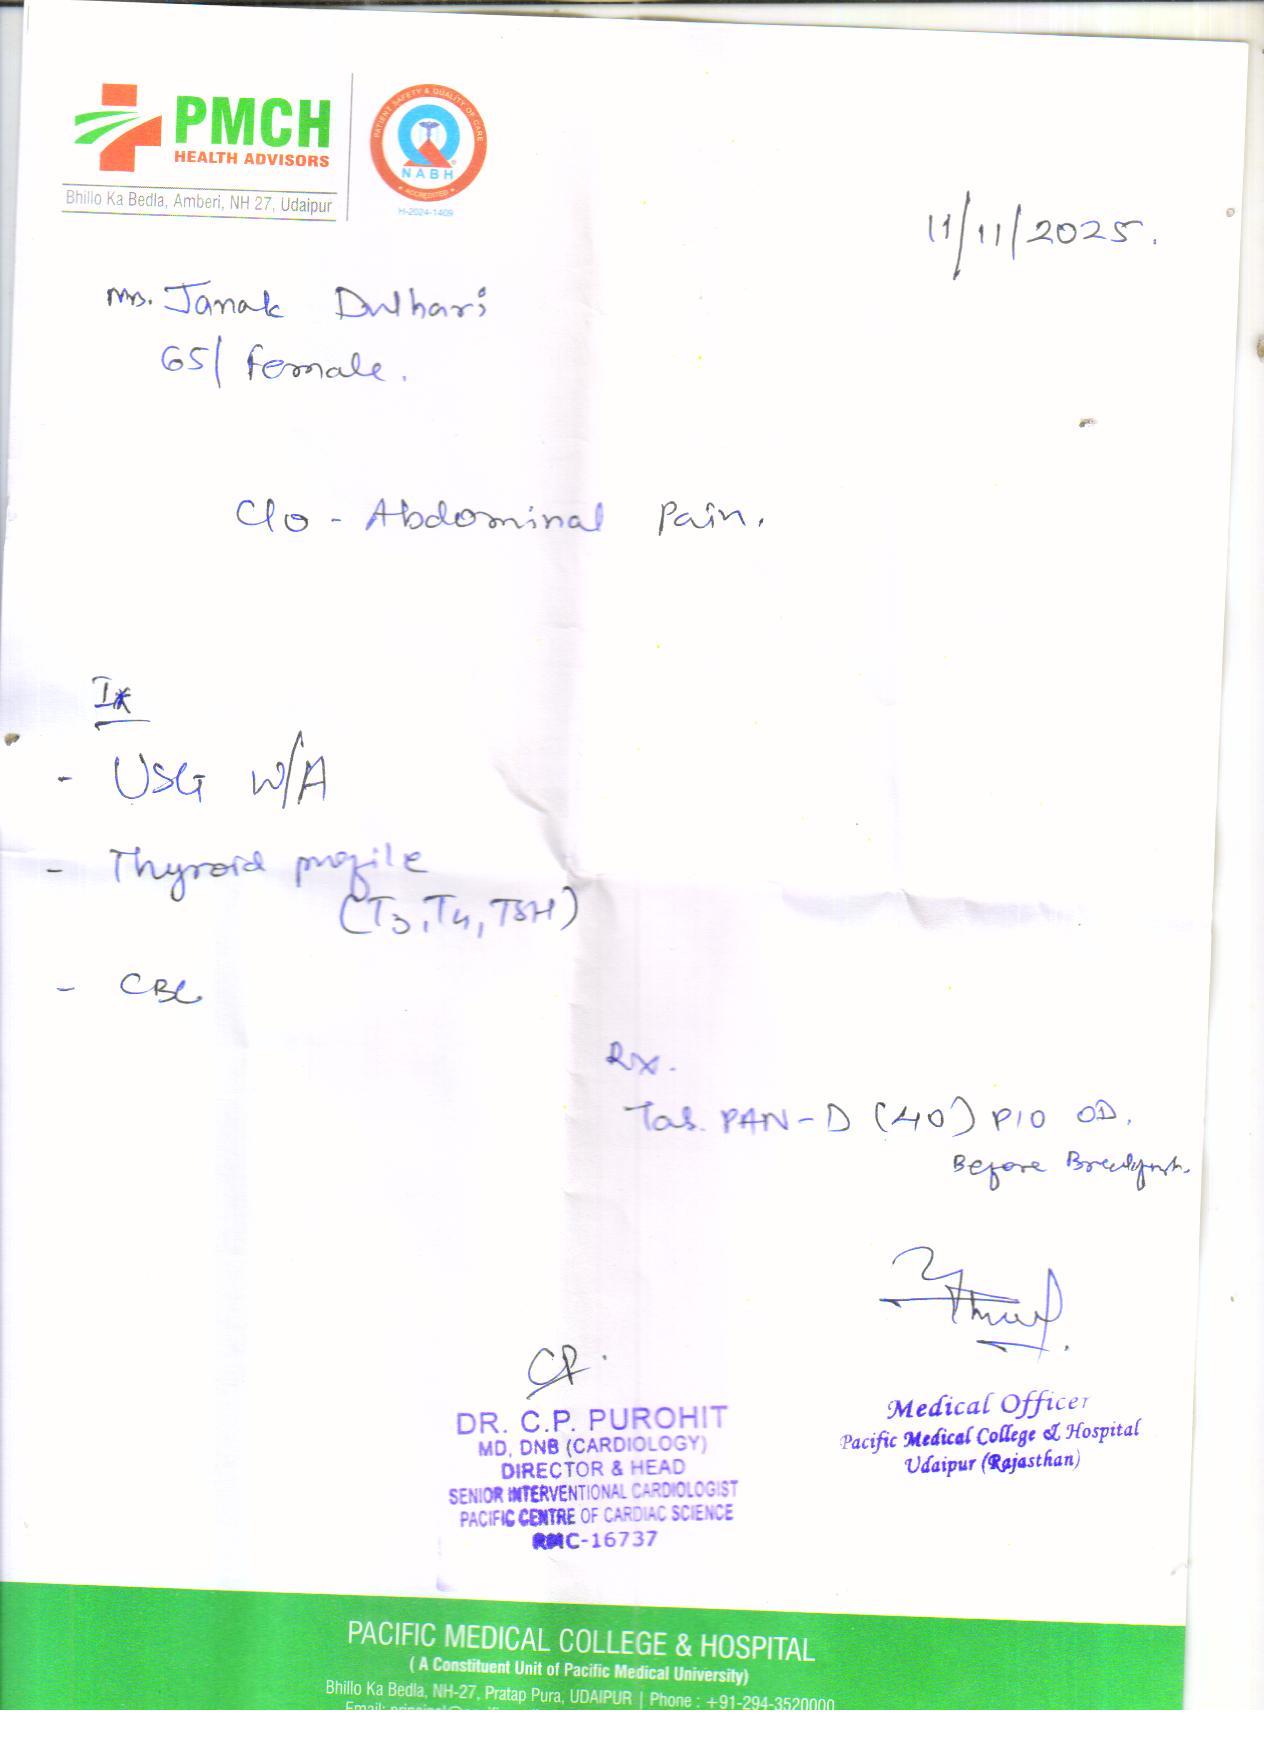 PMCH
HEALTH ADVISORS
Bhillo Ka Bedla, Amberi, NH 27, Udaipur
PATIENT SAFETY & QUALITY OF CARE
NABH
ACCREDITED
H-2024-1409
11/11/2025.
Mrs. Janak Dulhari
65/ Female.
C/o - Abdominal Pain.
Ix
- USG W/A
- Thyroid profile
(T3, T4, TSH)
- CBC
Rx.
Tab. PAN-D (40) P/O OD.
Before Breakfast.
CP.
DR. C.P. PUROHIT
MD, DNB (CARDIOLOGY)
DIRECTOR & HEAD
SENIOR INTERVENTIONAL CARDIOLOGIST
PACIFIC CENTRE OF CARDIAC SCIENCE
RMC-16737
Medical Officer
Pacific Medical College & Hospital
Udaipur (Rajasthan)
PACIFIC MEDICAL COLLEGE & HOSPITAL
( A Constituent Unit of Pacific Medical University)
Bhillo Ka Bedla, NH-27, Pratap Pura, UDAIPUR | Phone : +91-294-3520000